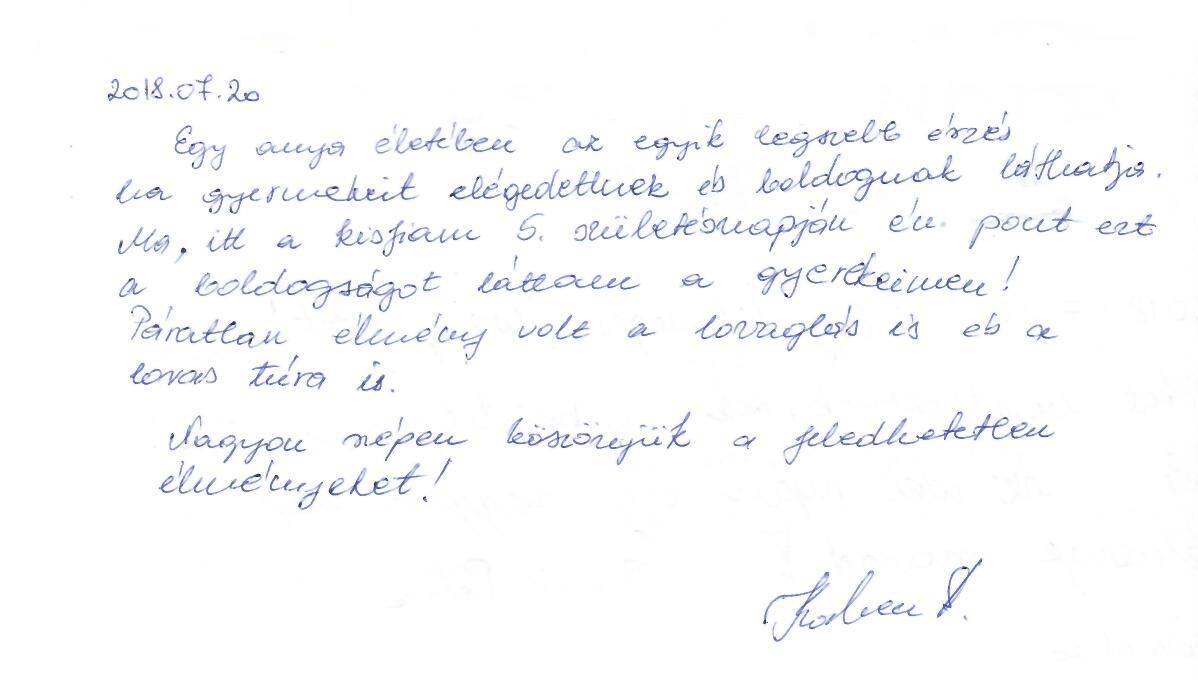 2018.07.20
Egy anya életében az egyik legszebb érzés
ha gyermekeit elégedettnek és boldognak láthatja.
Ma, itt a kisfiam 5. születésnapján én pont ezt
a boldogságot láttam a gyerekeimen!
Páratlan élmény volt a lovaglás is és a
lovas túra is.
Nagyon szépen köszönjük a feledhetetlen
élményeket!